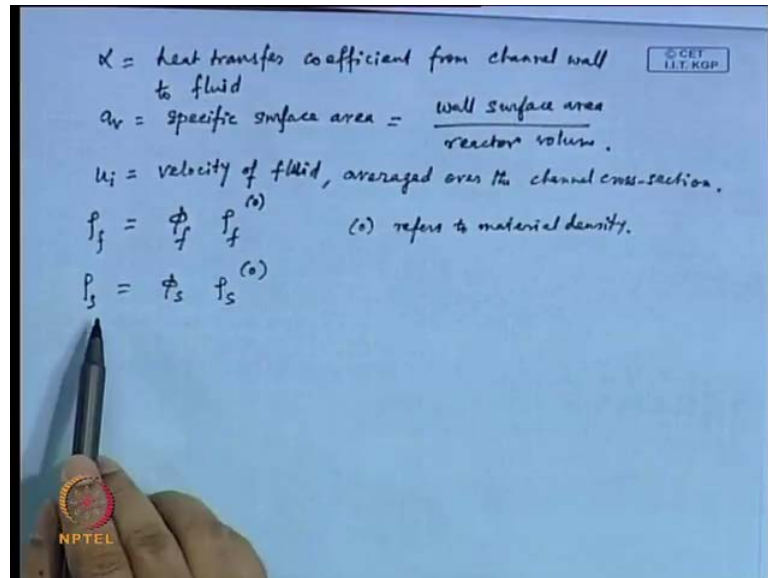 α = heat transfer coefficient from channel wall
to fluid
© CET
I.I.T. KGP
a_v = specific surface area = wall surface area / reactor volume.
u_i = velocity of fluid, averaged over the channel cross-section.
ρ_f = φ_f ρ_f^(0) (0) refers to material density.
ρ_s = φ_s ρ_s^(0)
NPTEL